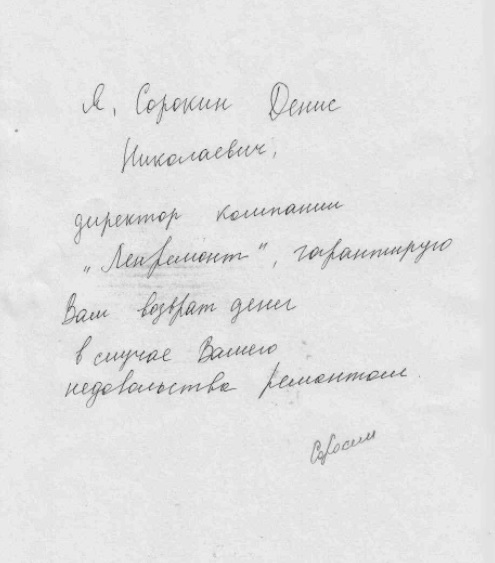 Я, Сорокин Денис
Николаевич,
директор компании
"Ленремонт", гарантирую
Вам возврат денег
в случае Вашего
недовольства ремонтом.